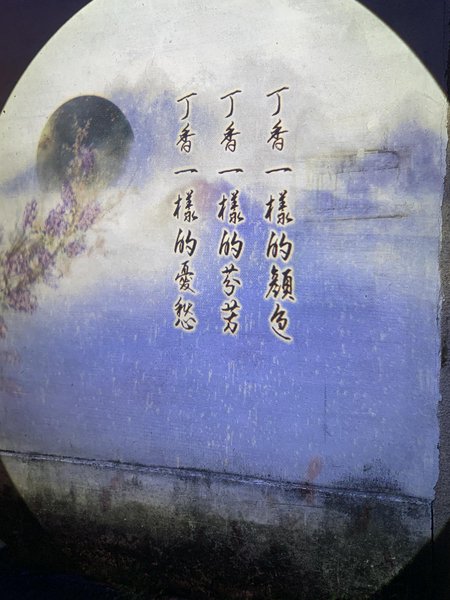 丁香一樣的顏色
丁香一樣的芬芳
丁香一樣的憂愁